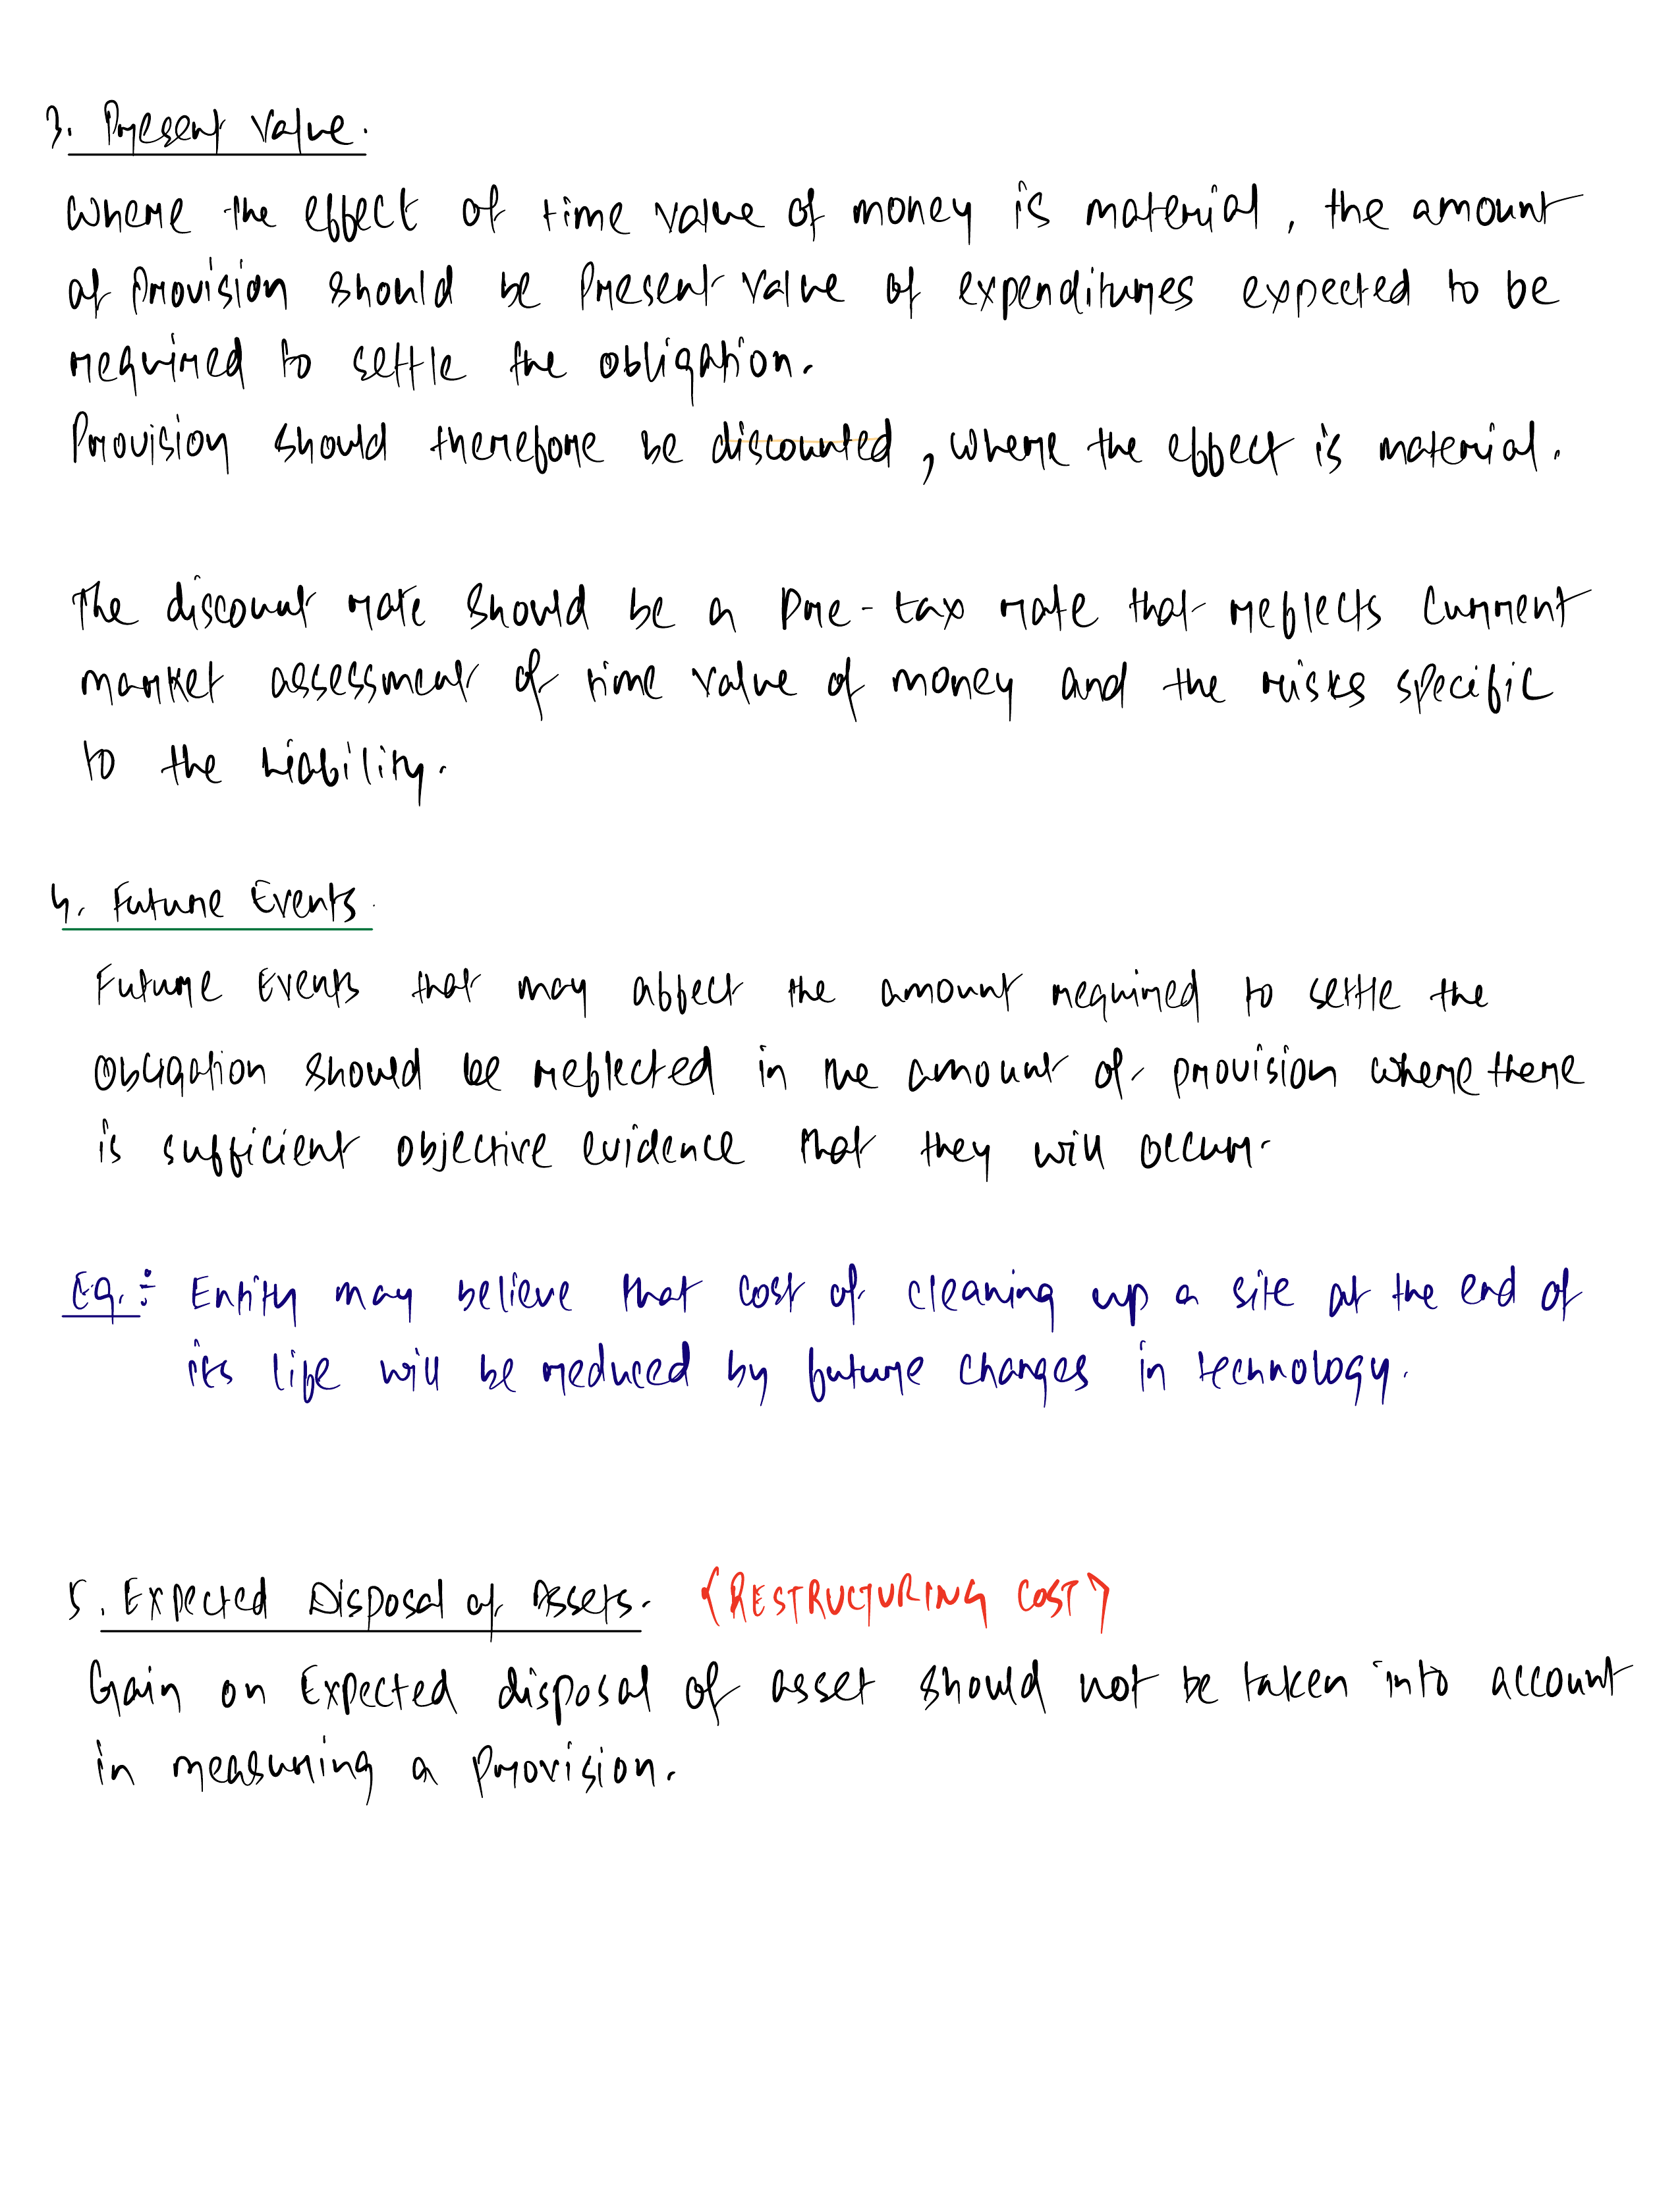 3. Present Value.
Where the effect of time value of money is material, the amount
of Provision should be Present Value of expenditures expected to be
required to settle the obligation.
Provision should therefore be discounted, where the effect is material.
The discount rate should be a Pre-tax rate that reflects Current
market assessment of time value of money and the risks specific
to the liability.
4. Future Events.
Future Events that may affect the amount required to settle the
Obligation should be reflected in the amount of provision where there
is sufficient objective evidence that they will occur.
Eg.:- Entity may believe that cost of cleaning up a site at the end of
its life will be reduced by future changes in technology.
5. Expected Disposal of Assets. {RESTRUCTURING COST}
Gain on Expected disposal of asset should not be taken into account
in measuring a Provision.